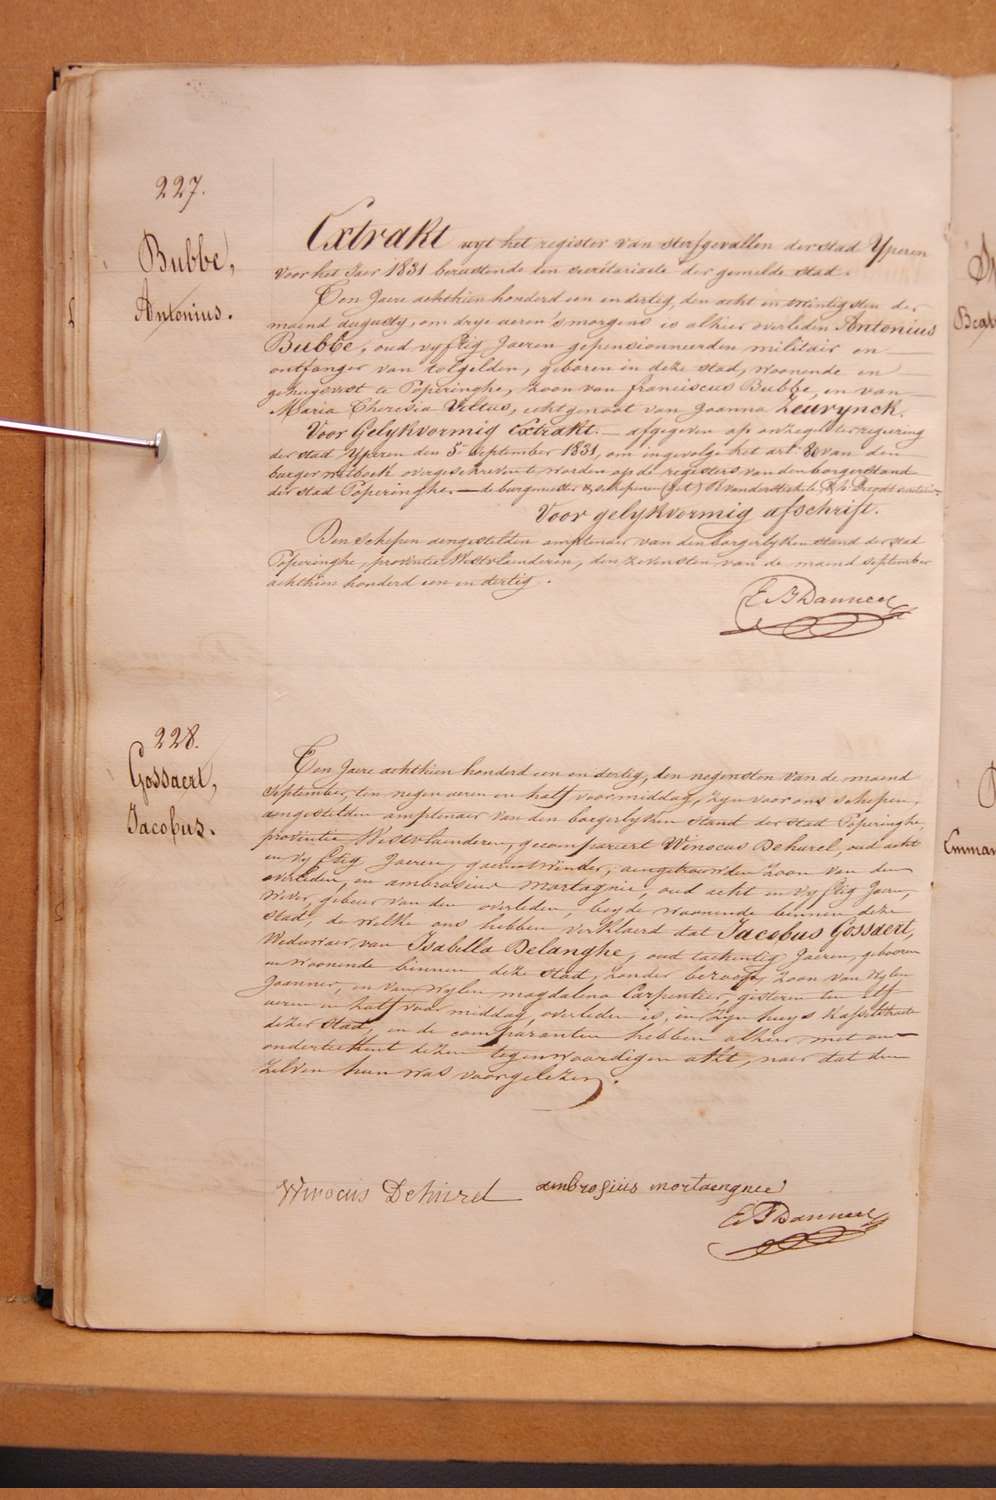 227.
Bubbe,
Antonius.
Extrakt uyt het register van sterfgevallen der stad Yperen
voor het Jaer 1831 berustende ten secretariaete der gemelde stad.
Ten Jaere achthien honderd een en dertig, den acht en twintigsten der
maend augusty, om drye ueren 's morgens is alhier overleden Antonius
Bubbe, oud vyftig Jaeren gepensionneerden militair en
ontfanger van tolgelden, geboren in deze stad, woonende en
gehuysvest te Poperinghe, zoon van franciscus Bubbe, en van
Maria Theresia Veltus, echtgenoot van Joanna Zeurynck.
Voor Gelykvormig Extrakt. afgegeven op onzegel ter regering
der stad Yperen den 5 september 1831, om ingevolge het art. 80 van den
burger wetboek overgeschreven te worden op de registers van den borgerstand
der stad Poperinghe. de burgmeester & schepenen (get)
Voor gelykvormig afschrift.
Den Schepen aengestelden amptenaer van den borgerlyken stand der stad
Poperinghe, provintie Westvlaenderen, den zevensten van de maend september
achthien honderd een en dertig.
228.
Gossaert,
Jacobus.
Ten Jaere achthien honderd een en dertig, den negensten van de maend
September, ten negen ueren en half voormiddag, zyn voor ons schepen,
aengestelden amptenaer van den borgerlyken stand der stad Poperinghe,
provintie Westvlaenderen, gecompareert Winocus Dehurel, oud acht
en vyftig Jaeren, aengetrouwden zoon van den
overleden, en ambrosius mortagnie, oud acht en vyftig Jaeren,
wever, gebeur van den overleden, beyde woonende binnen deze
stad, de welke ons hebben verklaerd dat Jacobus Gossaert,
Weduwaer van Isabella Delanghe, oud tachentig Jaeren, geboren
en woonende binnen deze stad, zonder beroep, zoon van wylen
Joannes, en van wylen magdalena Carpentier, gisteren ten elf
ueren en half voor middag, overleden is, in zyn huys
dezer stad, en de comparanten hebben alhier met ons
onderteekent dezen tegenwoordigen akt, naer dat den
zelven hun was voorgelezen.
Winocus Dehurel
ambrosius mortaengnee